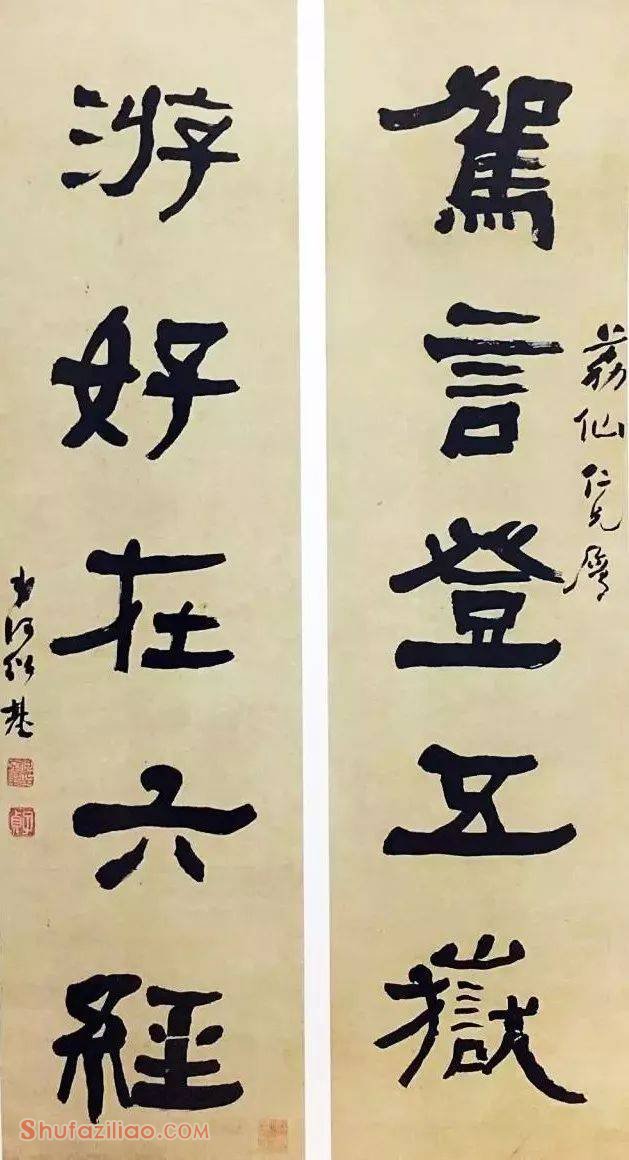 駕言登五嶽
荔仙仁兄屬
游好在六經
弟何紹基
Shufaziliao.COM